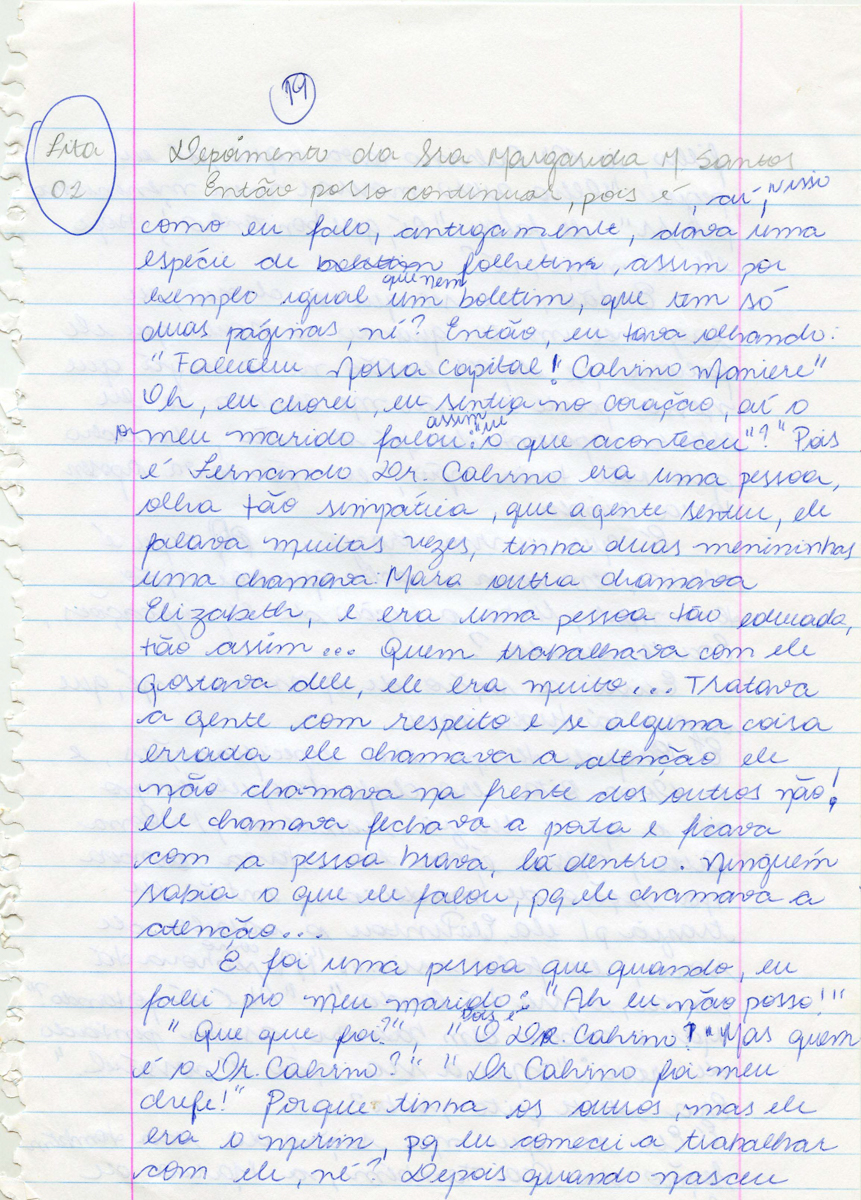 19
Fita
02
Depoimento da Sra Margarida M Santos
Então posso continuar, pois é, aí, nisso
como eu falo, antigamente, dava uma
espécie de folhetim, assim por
exemplo igual que nem um boletim, que tem só
duas páginas, né? Então, eu tava olhando:
"Faleceu Nossa Capital! Calvino Maniere"
Oh, eu chorei, eu sentia no coração, aí o
meu marido falou: assim "o que aconteceu"? "Pois
é Fernando Dr. Calvino era uma pessoa,
olha tão simpática, que a gente sentiu, ele
falava muitas vezes, tinha duas menininhas
uma chamava: Mara outra chamava
Elizabeth, e era uma pessoa tão educada,
tão assim... Quem trabalhava com ele
gostava dele, ele era muito... Tratava
a gente com respeito e se alguma coisa
errada ele chamava a atenção ele
não chamava na frente dos outros não!
ele chamava fechava a porta e ficava
com a pessoa brava, lá dentro. Ninguém
sabia o que ele falou, pq ele chamava a
atenção...
E foi uma pessoa que quando, eu
falei pro meu marido: "Ah eu não posso!"
"Que que foi?", "Pois é O Dr. Calvino? "Mas quem
é o Dr. Calvino?" "Dr Calvino foi meu
chefe!" Porque tinha os outros, mas ele
era o, pq eu comecei a trabalhar
com ele, né? Depois quando nasceu